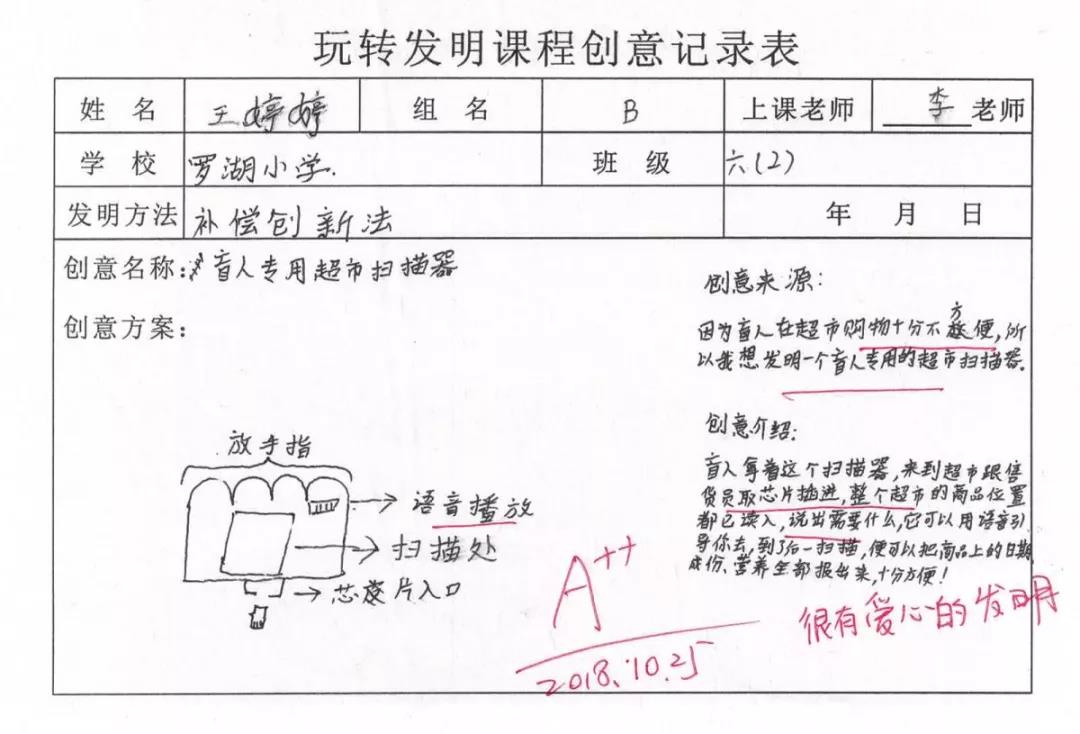 玩转发明课程创意记录表
姓 名 王婷婷 组 名 B 上课老师 李 老师
学 校 罗湖小学. 班 级 六(2)
发明方法 补偿创新法 年 月 日
创意名称: 盲人专用超市扫描器
创意方案:
放手指
语音播放
扫描处
芯片入口
创意来源:
因为盲人在超市购物十分不方便,所
以我想发明一个盲人专用的超市扫描器.
创意介绍:
盲人拿着这个扫描器,来到超市跟售
货员取芯片插进,整个超市的商品位置
都已读入,说出需要什么,它可以用语音引
导你去,到了后一扫描,便可以把商品上的日期
成份、营养全部报出来,十分方便!
A++
2018.10.25
很有爱心的发明